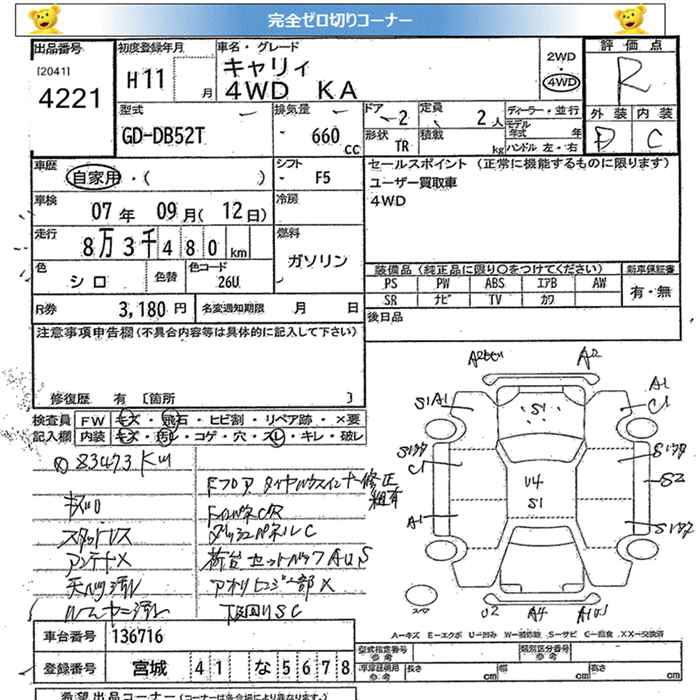 完全ゼロ切りコーナー
出品番号
[2041]
4221
初度登録年月
H11 月
車名・グレード
キャリィ
4WD KA
2WD
・
4WD
評価点
R
外装 内装
D C
型式
GD-DB52T
排気量
660 cc
ドア
2
定員
2人
形状
TR
積載
kg
ディーラー・並行
モデル年式 年
ハンドル 左・右
車歴
自家用・( )
シフト
F5
車検
07年 09月(12日)
冷房
走行
8万3千480km
燃料
ガソリン
色
シロ
色替
色コード
26U
R券 3,180円
名変通知期限 月 日
セールスポイント (正常に機能するものに限ります)
ユーザー買取車
4WD
装備品 (純正品に限り○をつけてください)
PS PW ABS エアB AW
SR ナビ TV カワ
新車保証書
有・無
後日品
注意事項申告欄(不具合内容等は具体的に記入して下さい)
修復歴 有 [箇所 ]
検査員記入欄
FW キズ・飛石・ヒビ割・リペア跡・×要
内装 キズ・汚レ・コゲ・穴・スレ・キレ・破レ
83473 KM
Fフロア タイヤハウスインナー修正
スタットレス
ダッシュパネルC
アンテナX
荷台セットバックAUS
下回りSC
A2
A1
S1A1
C1
S1
C1
U4
S1
S2
A1
スペア
U2
A4
A-キズ E-エクボ U-凹み W-補修跡 S-サビ C-腐食 XX-交換済
車台番号 136716
登録番号 宮城 41 な 5678
型式指定番号
参考
類別区分番号
参考
車庫証明用
参考
長さ cm
幅 cm
高さ cm
希望出品コーナー